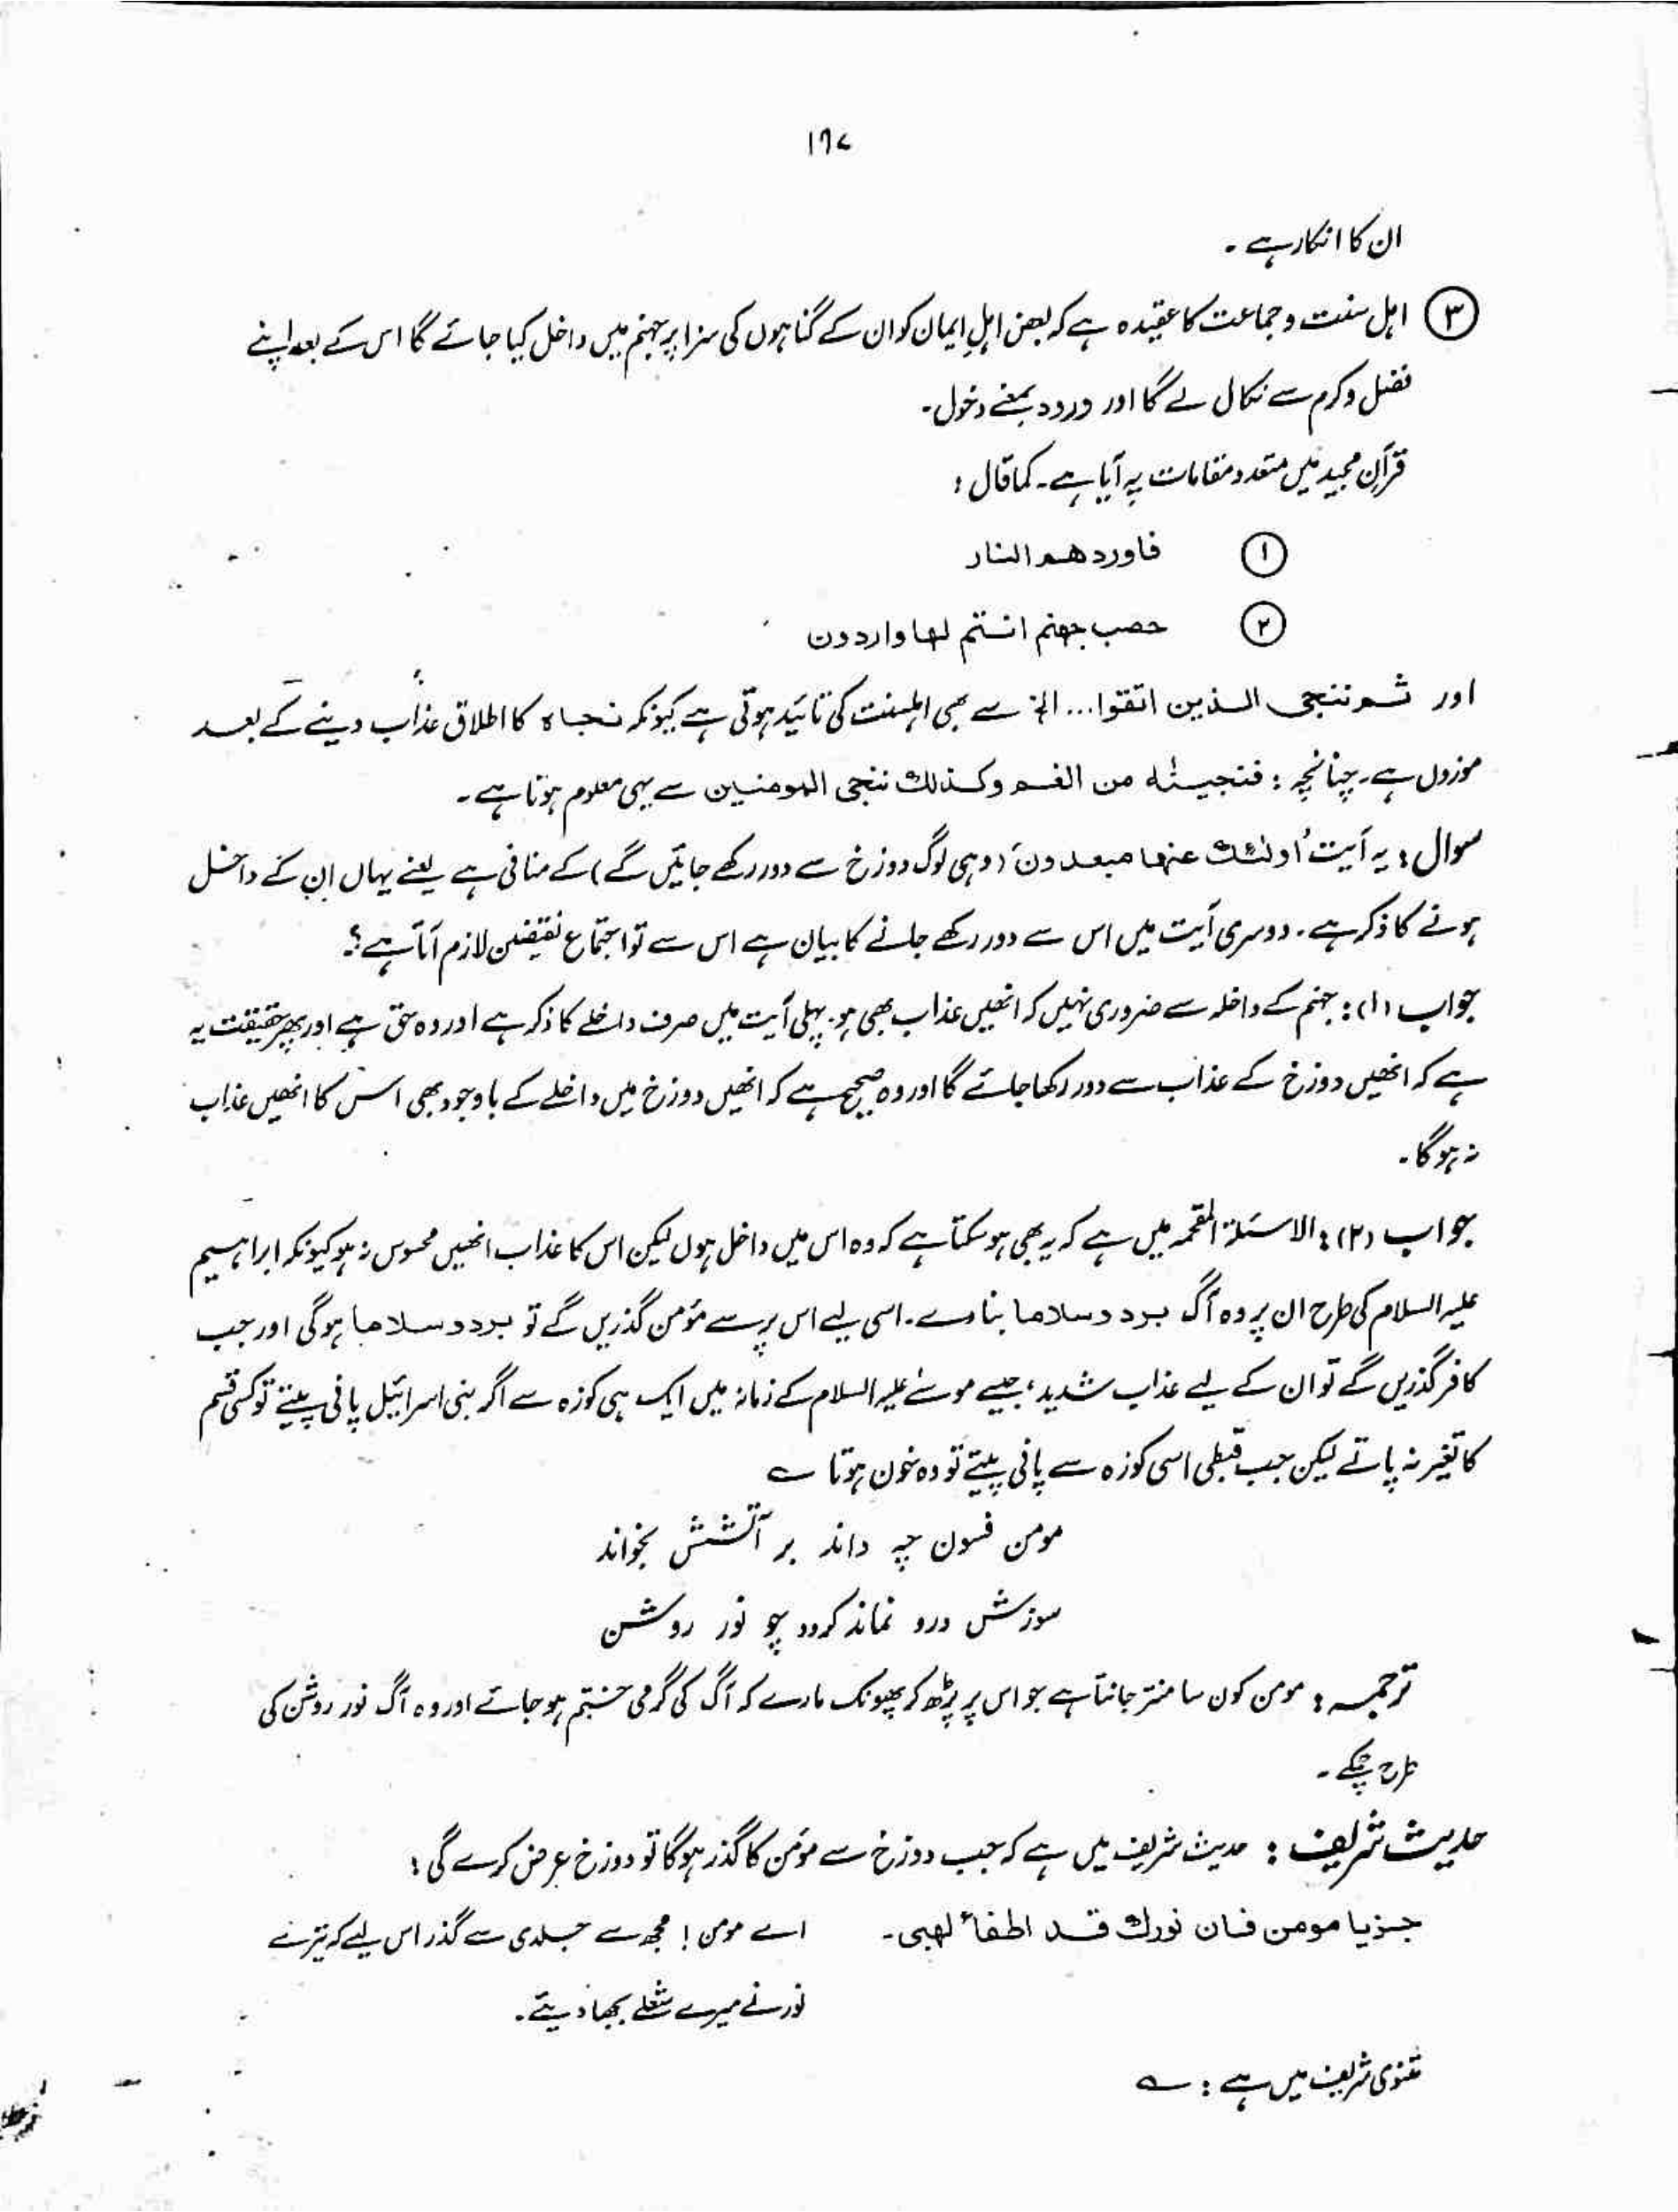 ۱۶۷
ان کا انکار ہے ۔
③ اہل سنت و جماعت کا عقیدہ ہے کہ بعض اہلِ ایمان کو ان کے گناہوں کی سزا پر جہنم میں داخل کیا جائے گا اس کے بعد اپنے
فضل و کرم سے نکال لے گا اور ورود بمعنے دخول۔
قرآن مجید میں متعدد مقامات پہ آیا ہے۔ کما قال :
① فاوردھم النار
② حصب جھنم انتم لھا واردون
اور ثم ننجی الذین اتقوا... الخ سے بھی اہلسنت کی تائید ہوتی ہے کیونکہ نجاہ کا اطلاق عذاب دینے کے بعد
موزوں ہے۔ چنانچہ : فنجینٰہ من الغم وکذلک ننجی المومنین سے یہی معلوم ہوتا ہے ۔
سوال : یہ آیت اُولئک عنھا مبعدون (وہی لوگ دوزخ سے دور رکھے جائیں گے) کے منافی ہے یعنے یہاں ان کے داخل
ہونے کا ذکر ہے۔ دوسری آیت میں اس سے دور رکھے جانے کا بیان ہے اس سے تو اجتماع نقیضین لازم آتا ہے؟
جواب (۱) : جہنم کے داخلہ سے ضروری نہیں کہ انھیں عذاب بھی ہو۔ پہلی آیت میں صرف داخلے کا ذکر ہے اور وہ حق ہے اور پھر حقیقت یہ
ہے کہ انھیں دوزخ کے عذاب سے دور رکھا جائے گا اور وہ صحیح ہے کہ انھیں دوزخ میں داخلے کے باوجود بھی اس کا انھیں عذاب
نہ ہوگا۔
جواب (۲) : الاسئلۃ المقحمہ میں ہے کہ یہ بھی ہو سکتا ہے کہ وہ اس میں داخل ہوں لیکن اس کا عذاب انھیں محسوس نہ ہو کیونکہ ابراہیم
علیہ السلام کی طرح ان پر وہ آگ برد وسلاما بنا دے۔ اسی لیے اس پر سے مؤمن گذریں گے تو برد وسلاما ہوگی اور جب
کافر گذریں گے تو ان کے لیے عذاب شدید، جیسے موسےٰ علیہ السلام کے زمانہ میں ایک ہی کوزہ سے اگر بنی اسرائیل پانی پیتے تو کسی قسم
کا تغیر نہ پاتے لیکن جب قبطی اسی کوزہ سے پانی پیتے تو وہ خون ہوتا ؎
مومن فسون چہ داند بر آتشش بخواند
سوزش درو نماند گردد چو نور روشن
ترجمہ : مومن کون سا منتر جانتا ہے جو اس پر پڑھ کر پھونک مارے کہ آگ کی گرمی ختم ہو جائے اور وہ آگ نور روشن کی
طرح چمکے ۔
حدیث شریف : حدیث شریف میں ہے کہ جب دوزخ سے مؤمن کا گذر ہوگا تو دوزخ عرض کرے گی :
جز یا مومن فان نورك قد اطفأ لھبی۔ اے مومن ! مجھ سے جلدی سے گذر اس لیے کہ تیرے
نور نے میرے شعلے بجھا دیئے۔
مثنوی شریف میں ہے : ؎